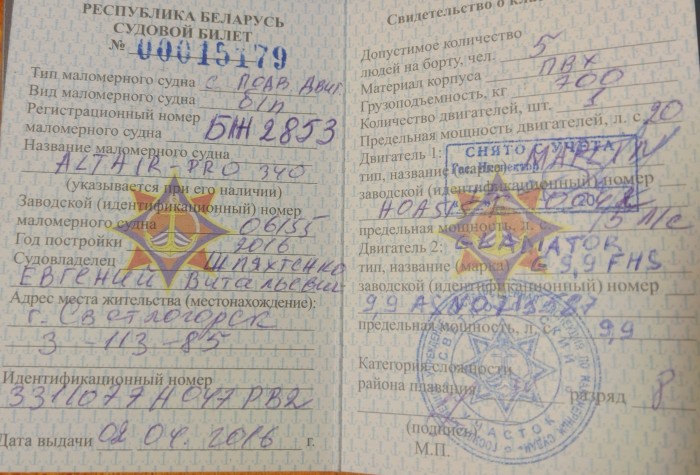 РЕСПУБЛИКА БЕЛАРУСЬ
СУДОВОЙ БИЛЕТ
№ 00015179
Тип маломерного судна с подв двиг
Вид маломерного судна б/п
Регистрационный номер
маломерного судна БЖ 2853
Название маломерного судна
ALTAIR-PRO 340
(указывается при его наличии)
Заводской (идентификационный) номер
маломерного судна 06155
Год постройки 2016
Судовладелец Шпяхтенко
Евгений Витальевич
Адрес места жительства (местонахождение):
г. Светлогорск
3-113-85
Идентификационный номер
3311077H047PB2
Дата выдачи 02 04. 2016 г.
Свидетельство о
Допустимое количество
людей на борту, чел. 5
Материал корпуса ПВХ
Грузоподъемность, кг 700
Количество двигателей, шт. 1
Предельная мощность двигателей, л. с. 20
Двигатель 1:
СНЯТО С УЧЕТА
тип, название MARLIN
Госинспектор
заводской (идентификационный) номер
предельная мощность, л. с. 15 л/с
Двигатель 2: GLADIATOR
тип, название (марка) G 9,9 FHS
заводской (идентификационный) номер
предельная мощность, л. с. 9,9
Категория сложности
района плавания разряд 8
(подпись)
М.П.
УЧАСТОК